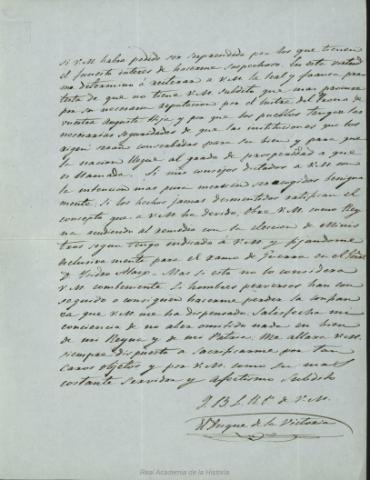 si V.M. habia podido ser sorprendida por los que tienen
el funesto interes de hacerme sospechoso. En esta virtud
me determino á reiterar a V.M. la leal y franca pro
testa de que no tiene V.M. subdito que mas procure
por su necesaria reputacion por el lustre del Trono de
vuestra Augusta Hija y por que los pueblos tengan las
necesarias seguridades de que las instituciones que los
rigen seran conservadas para su bien y para que
la nacion llegue al grado de prosperidad a que
es llamada. Si mis consejos dictados a V.M. con
la intencion mas pura merecen ser acogidos benigna
mente. Si los hechos jamas desmentidos ratifican el
concepto que a V.M. he devido, Obre V.M. como Rey
na acudiendo al remedio con la eleccion de Minis
tros segun tengo indicado á V.M. y fijandome
esclusivamente para el ramo de Guerra en el Gral
D. Isidro Alaix. Mas si esto no lo considera
V.M. combeniente. Si hombres perversos han con
seguido o consiguen hacerme perder la confian
za que V.M. me ha dispensado. Satisfecha mi
conciencia de no aber omitido nada en bien
de mi Reyna y de mi Patria. Me allara V.M.
siempre dispuesto a sacrificarme por tan
caros objetos y por V.M. como su mas
costante servidor y afectisimo Subdito
J. B. L. R. P. de V.M.
El Duque de la Victoria
Real Academia de la Historia